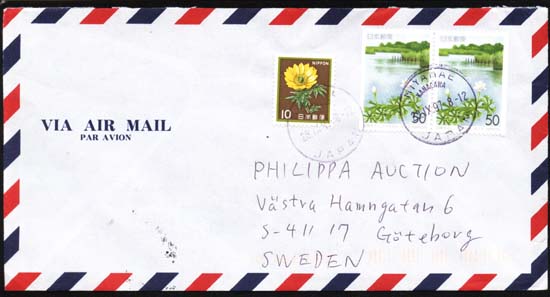 日本郵便 日本郵便
NIPPON
10 日本郵便
50 50
MIYAMAE
KANAGAWA
JAPAN
JAPAN
VIA AIR MAIL
PAR AVION
PHILIPPA AUCTION
Västra Hamngatan 6
S-411 17 Göteborg
SWEDEN